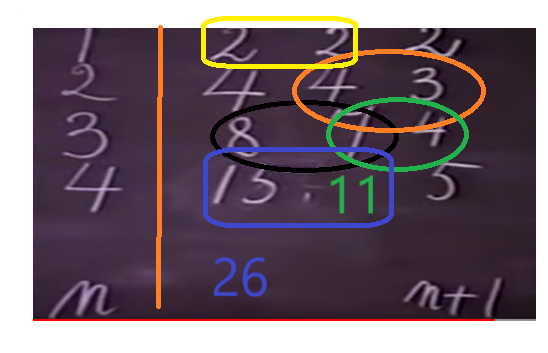 1 2 2 2
2 4 4 3
3 8 7 4
4 15 11 5
26
n n+1